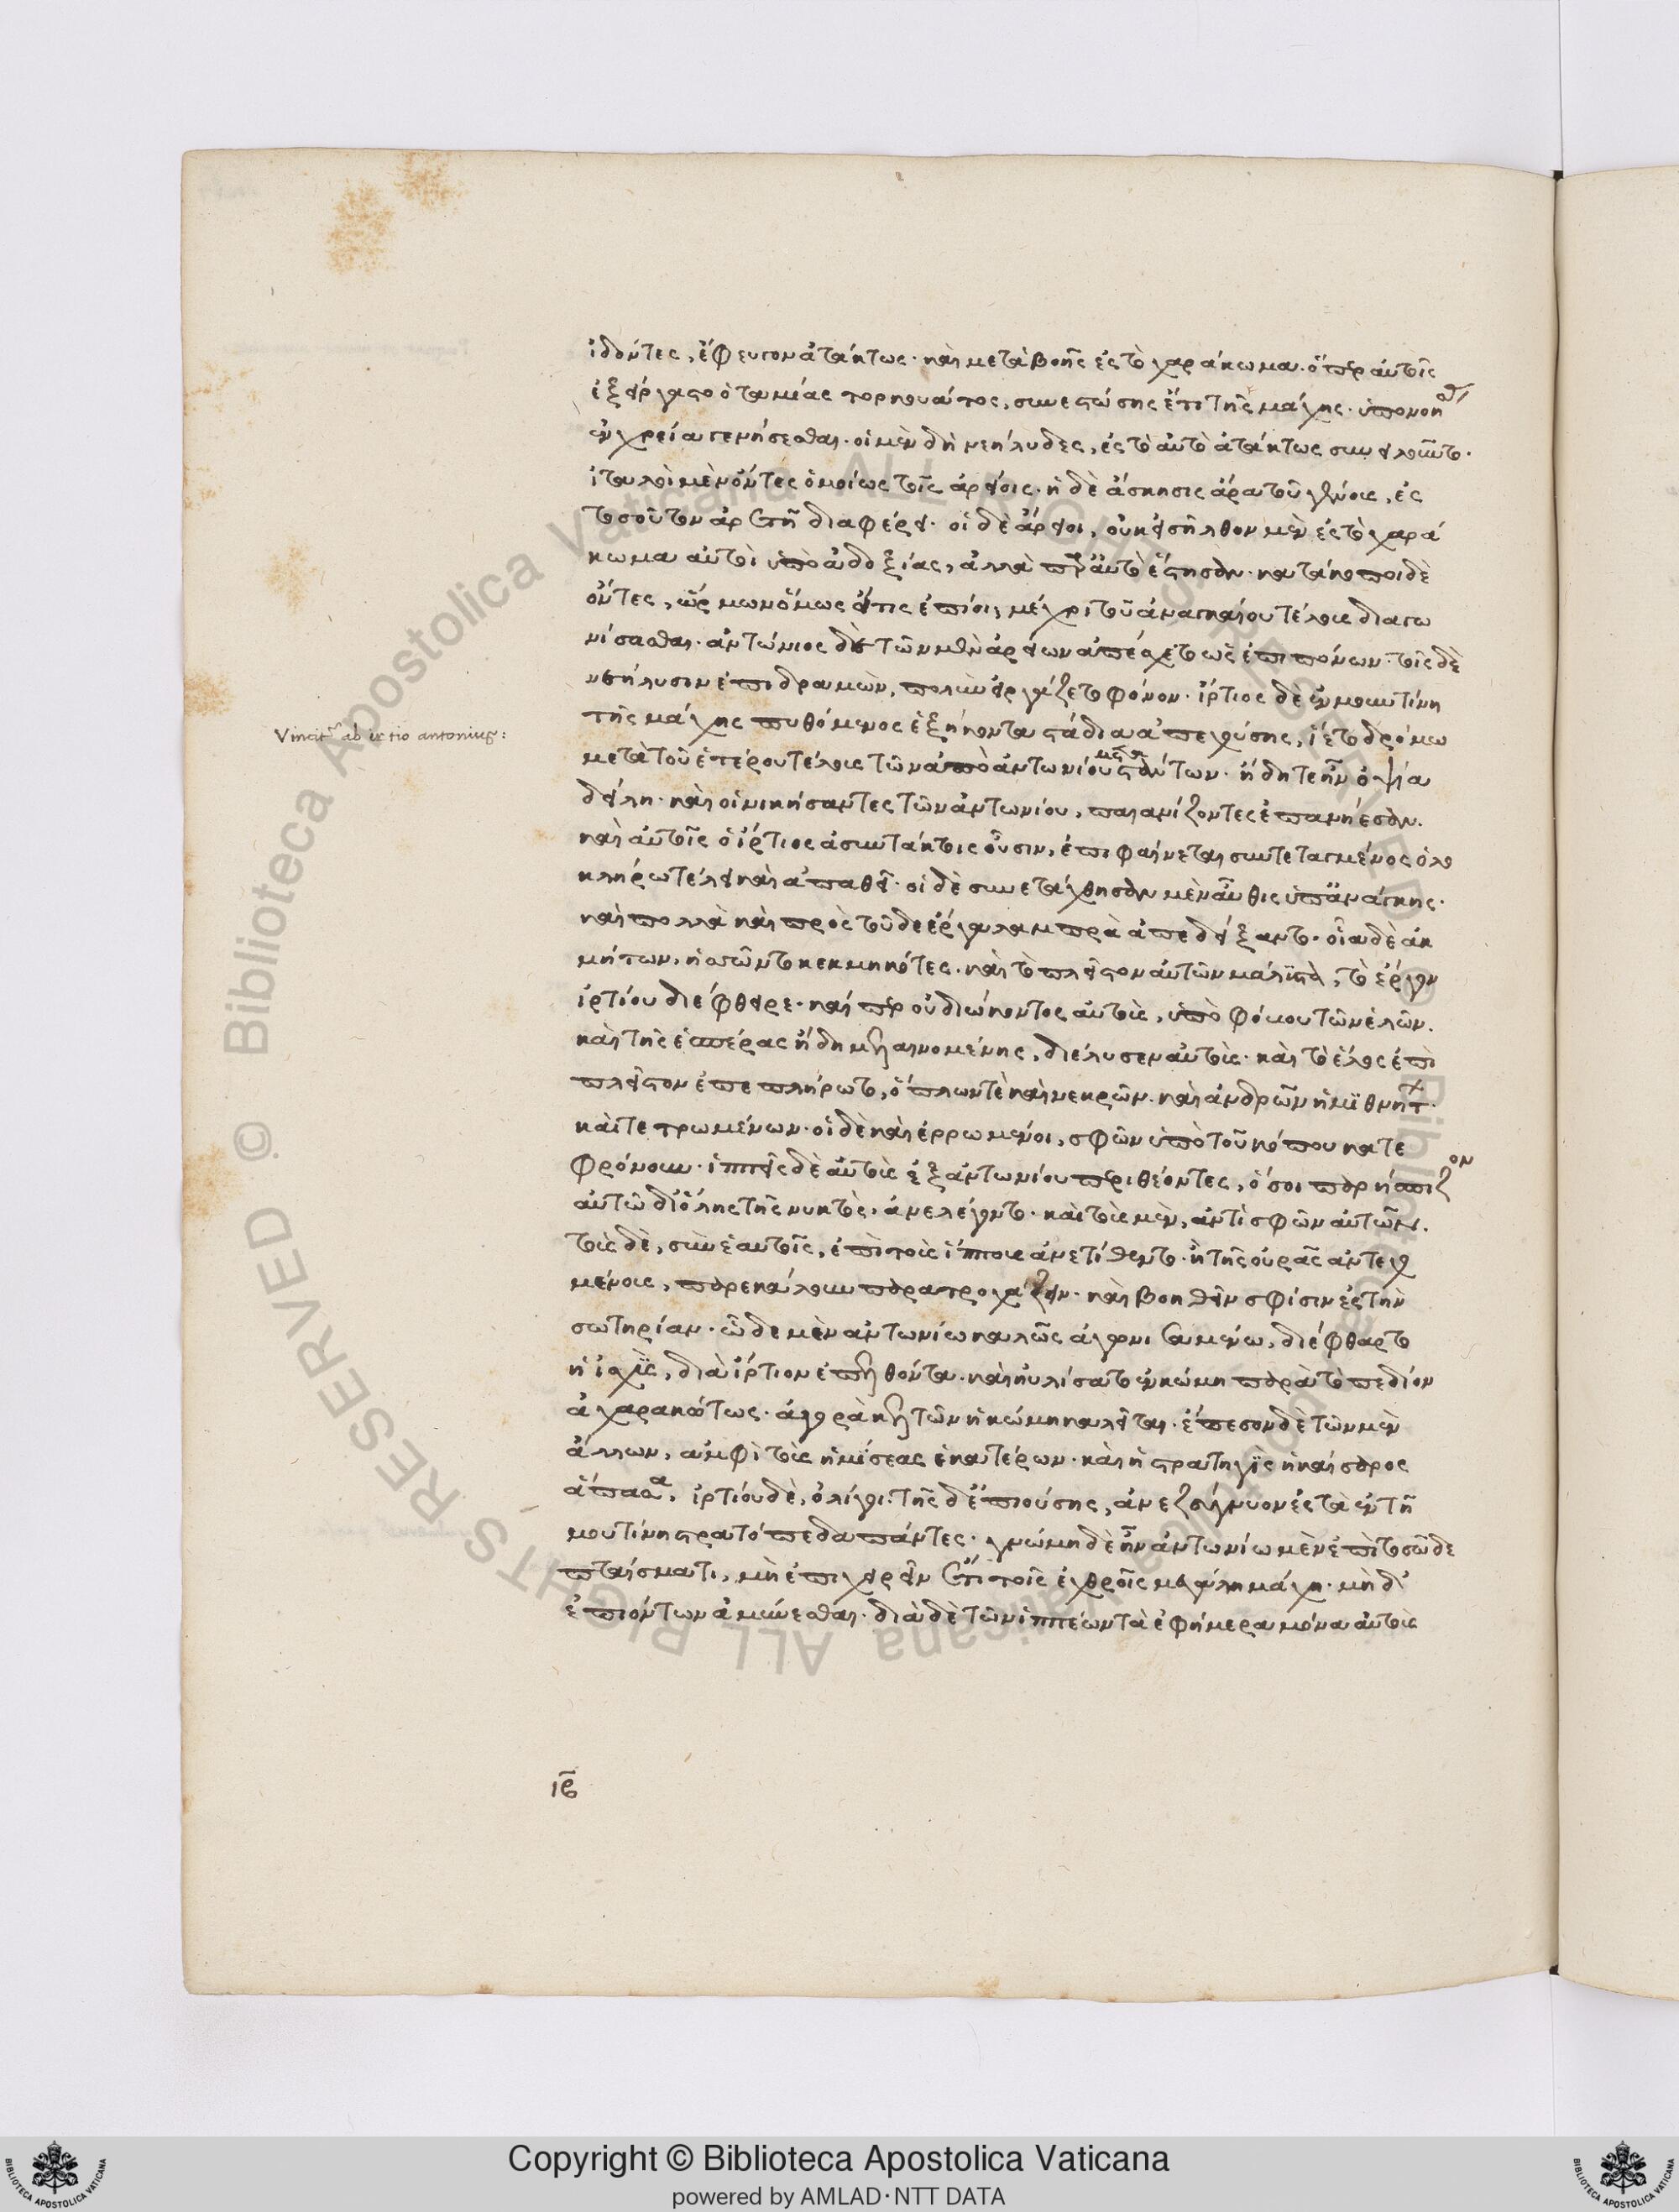 ἰδόντες, ἔφευγον ἀτάκτως· καὶ μετὰ βοῆς ἐς τὸ χαράκωμα· ὅπερ αὐτοῖς
ἐξείργαστο ὁ ταμίας τορκουάτος, συνεστώσης ἔτι τῆς μάχης· ὑπονοηθὲν
ἐν χρεία γενήσεσθαι· οἱ μὲν δὴ νεήλυδες, ἐς τὸ αὐτὸ ἀτάκτως συνειλοῦντο·
ἰταλοὶ μὲν ὄντες ὁμοίως τοῖς ἀρείοις· ἡ δὲ ἄσκησις ἄρα τοῦ γένους, ἐς
τοσοῦτον ἀρετῆ διαφέρει· οἱ δὲ ἄρειοι, οὐκ εἰσῆλθον μὲν ἐς τὸ χαρά
κωμα αὐτοὶ ὑπὸ ἀδοξίας, ἀλλὰ παρ' αὐτὸ ἔστησαν· κατάκοποι δὲ
ὄντες, ὥρμων ὅμως εἴ τις ἐπίοι, μέχρι τοῦ ἀναγκαίου τέλους διαγω
νίσασθαι· ἀντώνιος δὲ τῶν μὲν ἀρείων ἀπέσχετο ὡς ἐπιπόνων· τοῖς δὲ
νεήλυσιν ἐπιδραμὼν, πολὺν εἰργάζετο φόνον· ἵρτιος δὲ ἐν μουτίνη
Vincit᷑ ab irtio antonius:
τῆς μάχης πυθόμενος ἑξήκοντα στάδια ἀπεχούσης, ἵετο δρόμω
μετὰ τοῦ ἑτέρου τέλους τῶν ἀπὸ ἀντωνίου μεταστάντων· ἤδη τε ἦν ὀψία
δείλη· καὶ οἱ νικήσαντες τῶν ἀντωνίου, παιανίζοντες ἐπανήεσαν.
καὶ αὐτοῖς ὁ ἵρτιος ἀσυντάκτοις οὖσιν, ἐπιφαίνεται συντεταγμένος ὁλο
κλήρω τέλει καὶ ἀπαθεῖ· οἱ δὲ συνετάχθησαν μὲν αὖθις ὑπ' ἀνάγκης·
καὶ πολλὰ καὶ πρὸς τοῦδε ἔργα λαμπρὰ ἀπεδείξαντο· οἷα δὲ ἀκ
μήτων, ἡσσῶντο κεκμηκότες· καὶ τὸ πλεῖστον αὐτῶν μάλιστα, τὸ ἔργον
ἱρτίου διέφθειρε· καίπερ οὐ διώκοντος αὐτοὺς, ὑπὸ φόβου τῶν ἑλῶν.
καὶ τῆς ἑσπέρας ἤδη μελαινομένης, διέλυσεν αὐτοὺς· καὶ τὸ ἕλος ἐπὶ
πλεῖστον ἐπεπλήρωτο, ὅπλων τὲ καὶ νεκρῶν· καὶ ἀνδρῶν ἡμιθνήτων·
καὶ τετρωμένων· οἱ δὲ καὶ ἐρρωμένοι, σφῶν ὑπὸ τοῦ κόπου κατε
φρόνουν· ἱππεῖς δὲ αὐτοὺς ἐξ ἀντωνίου περιθέοντες, ὅσοι παρήσπιζον
αὐτῶ δι' ὅλης τῆς νυκτὸς, ἀνελέγοντο· καὶ τοὺς μὲν, ἀντὶ σφῶν αὐτῶν.
τοὺς δὲ, σὺν ἑαυτοῖς, ἐπὶ τοὺς ἵππους ἀνετίθεντο· ἢ τῆς οὐρᾶς ἀντεχο
μένους, παρεκάλουν παρατροχάζειν· καὶ βοηθεῖν σφίσιν ἐς τὴν
σωτηρίαν· ὧδε μὲν ἀντωνίω καλῶς ἀγωνισαμένω, διέφθαρτο
ἡ ἰσχὺς, διὰ ἵρτιον ἐπελθόντα· καὶ ηὐλίσατο ἐν κώμη παρὰ τὸ πεδίον
ἀχαρακώτως· ἀγορὰ κελτῶν ἡ κώμη καλεῖται· ἔπεσον δὲ τῶν μὲν
ἄλλων, ἀμφὶ τοὺς ἡμίσεας ἑκατέρων· καὶ ἡ στρατηγὶς ἡ καίσαρος
ἅπασα, ἱρτίου δὲ, ὀλίγοι· τῆς δ' ἐπιούσης, ἀνεζεύγνυον ἐς τὰ ἐν τῆ
μουτίνη στρατόπεδα πάντες· γνώμη δὲ ἦν ἀντωνίω μὲν ἐπὶ τοσῶδε
πταίσματι, μὴ ἐπιχειρεῖν ἔτι τοῖς ἐχθροῖς μεγάλη μάχη· μὴ δ'
ἐπιόντων ἀμύνεσθαι· διὰ δὲ τῶν ἱππέων τὰ ἐφήμερα μόνα αὐτοὺς
ις
© Biblioteca Apostolica Vaticana ALL RIGHTS RESERVED
Copyright © Biblioteca Apostolica Vaticana
powered by AMLAD·NTT DATA